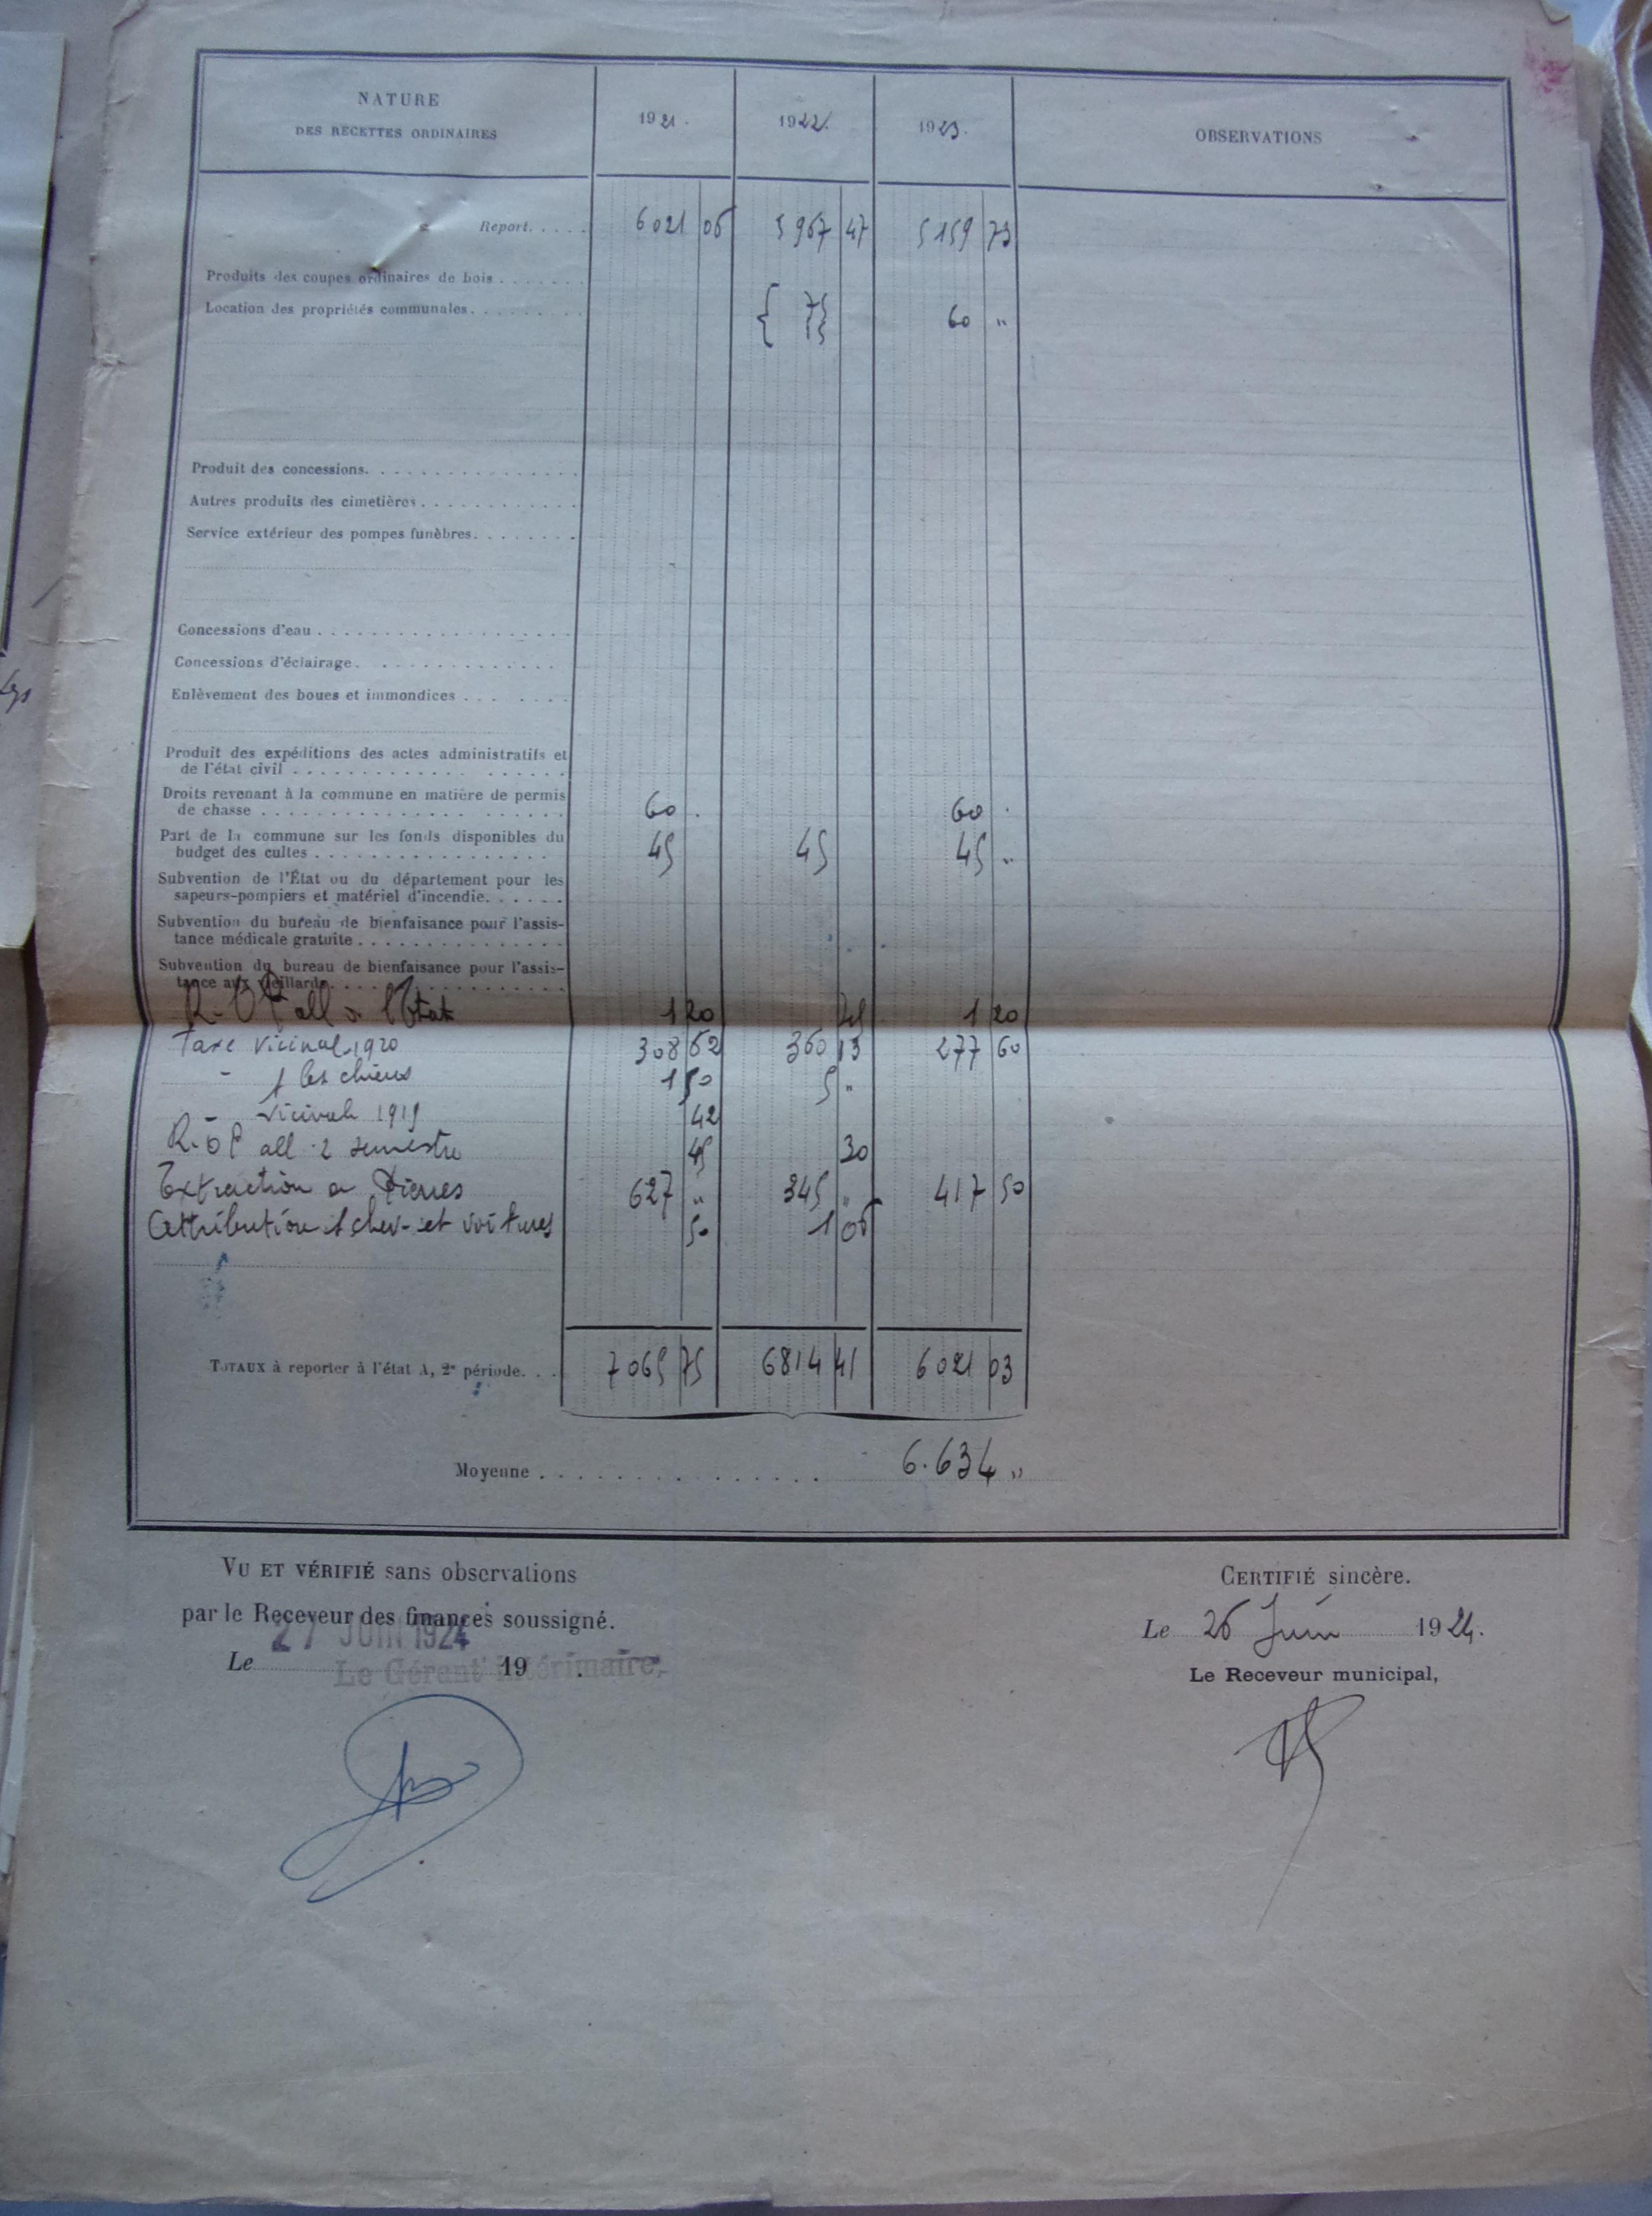 NATURE
DES RECETTES ORDINAIRES
1921. 1922. 1923. OBSERVATIONS
Report. . . . . 6021 05 5967 47 5159 73
Produits des coupes ordinaires de bois . . . . . . .
Location des propriétés communales. . . . . . . . . { 75 60 "
15
Produit des concessions. . . . . . . . . . . . . . . .
Autres produits des cimetières . . . . . . . . . . . .
Service extérieur des pompes funèbres. . . . . . . .
Concessions d'eau . . . . . . . . . . . . . . . . . . .
Concessions d'éclairage. . . . . . . . . . . . . .
Enlèvement des boues et immondices . . . . . . .
Produit des expéditions des actes administratifs et
de l'état civil . . . . . . . . . . . . . . . . . . .
Droits revenant à la commune en matière de permis
de chasse . . . . . . . . . . . . . . . . . . . 60 . 60 .
Part de la commune sur les fonds disponibles du
budget des cultes . . . . . . . . . . . . . . . . . 45 45 45 "
Subvention de l'État ou du département pour les
sapeurs-pompiers et matériel d'incendie. . . . . .
Subvention du bureau de bienfaisance pour l'assis-
tance médicale gratuite . . . . . . . . . . . . . .
Subvention du bureau de bienfaisance pour l'assis-
tance aux vieillards. . . . . . . . . . . . . . . . .
R. all l'Etat 1 20 1 20
Taxe vicinale 1920 308 62 360 13 277 60
- s les chiens 1 50 5 "
- vicinale 1919 42
all 2 semestre 45 30
Extraction de Pierres 627 " 345 " 417 50
Attribution s chev- et voitures 50 1 05
TOTAUX à reporter à l'état A, 2e période. . . 7065 75 6814 41 6021 03
Moyenne . . . . . . . . . . . . . . . 6.634 "
VU ET VÉRIFIÉ sans observations
par le Receveur des finances soussigné.
27 JUIN 1924
Le 19 .
Le Gérant intérimaire,
CERTIFIÉ sincère.
Le 26 Juin 1924.
Le Receveur municipal,